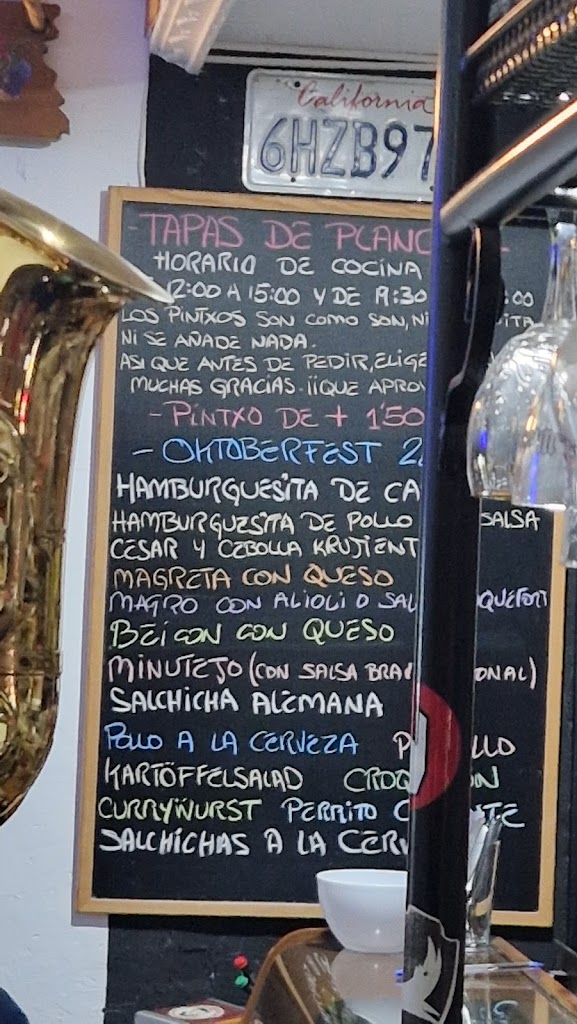 California
6HZB97
- TAPAS DE PLANC
HORARIO DE COCINA
12:00 A 15:00 Y DE 19:30 00
LOS PINTXOS SON COMO SON, NI UITA
NI SE AÑADE NADA.
ASI QUE ANTES DE PEDIR, ELIGE
MUCHAS GRACIAS. ¡¡QUE APROV
- PINTXO DE + 1'50
- OKTOBERFEST 2
HAMBURGUESITA DE CA
HAMBURGUESITA DE POLLO SALSA
CESAR Y CEBOLLA KRUJIENT
MAGRETA CON QUESO
MAGRO CON ALIOLI O SAL QUEFORT
BEICON CON QUESO
MINUTEJO (CON SALSA BRA ONAL)
SALCHICHA ALEMANA
POLLO A LA CERVEZA P LLO
KARTÖFFELSALAD CROQ ON
CURRYWURST PERRITO C NTE
SALCHICHAS A LA CERV